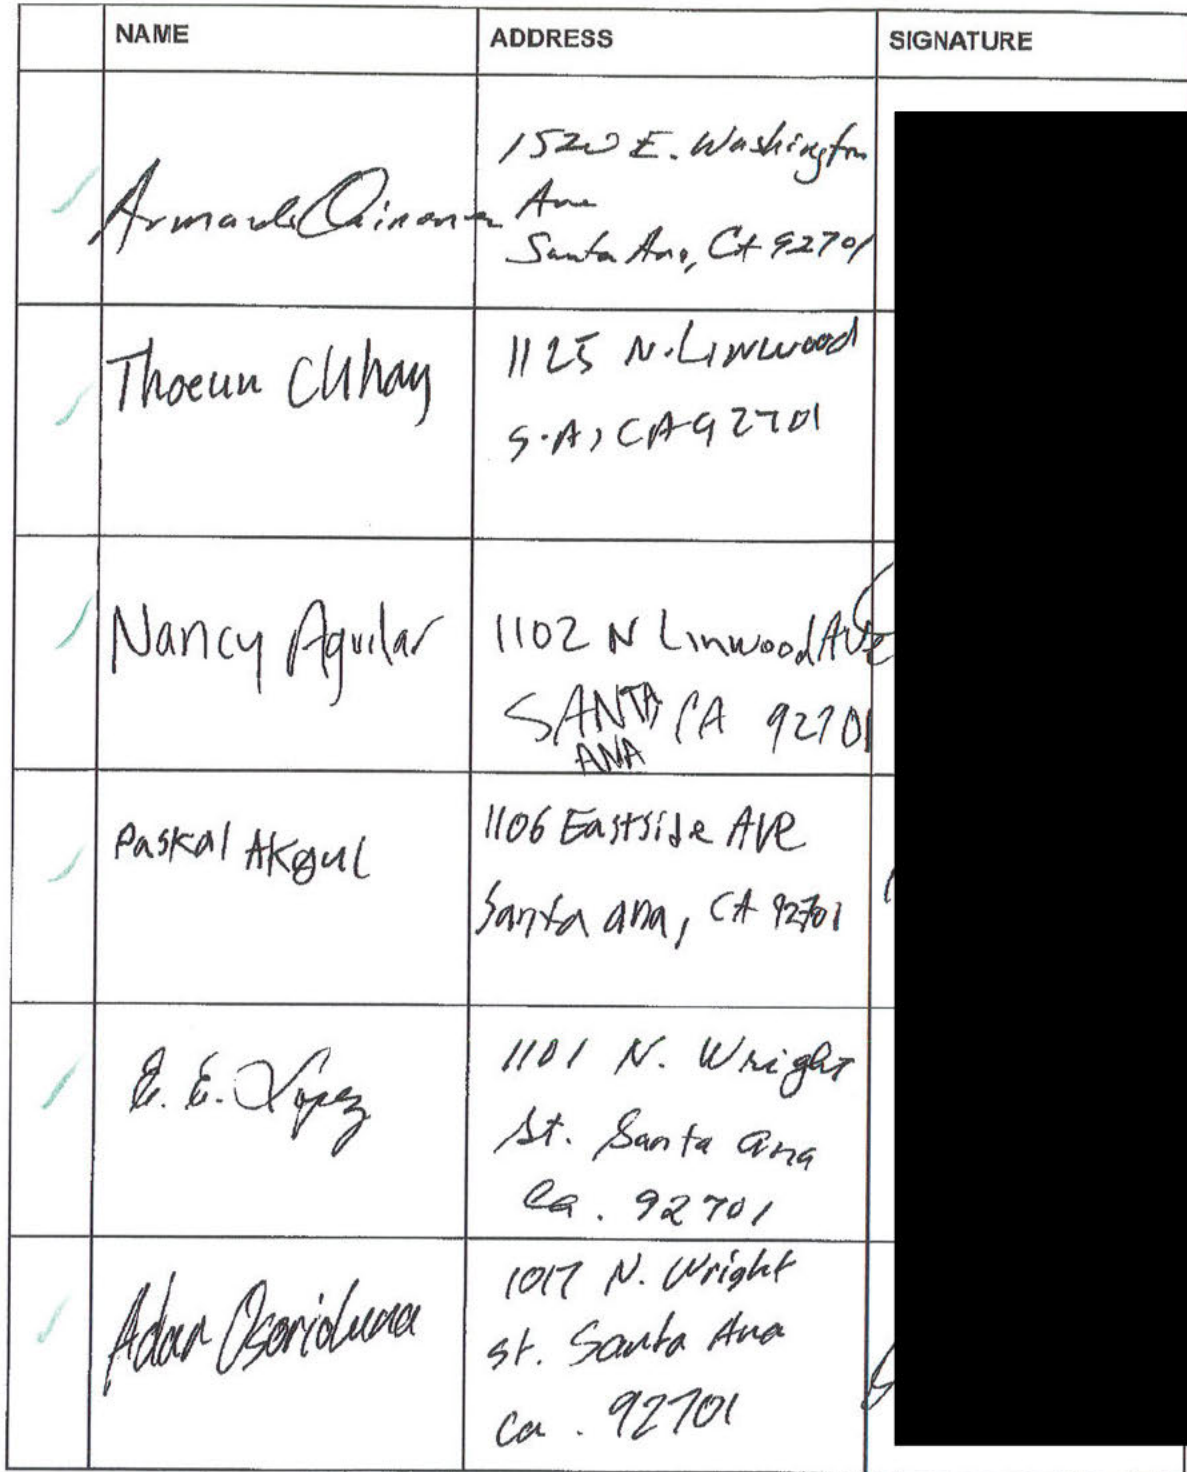 NAME ADDRESS SIGNATURE
1520 E. Washington
Armando Quinonez Ave
Santa Ana, CA 92701
Thoeun Chhay 1125 N. Linwood
S.A, CA 92701
Nancy Aguilar 1102 N Linwood AVE
SANTA CA 92701
ANA
Paskal Akgul 1106 Eastside AVE
Santa ana, CA 92701
E. E. Lopez 1101 N. Wright
St. Santa Ana
Ca. 92701
Adan Osorioluna 1017 N. Wright
st. Santa Ana
Ca. 92701